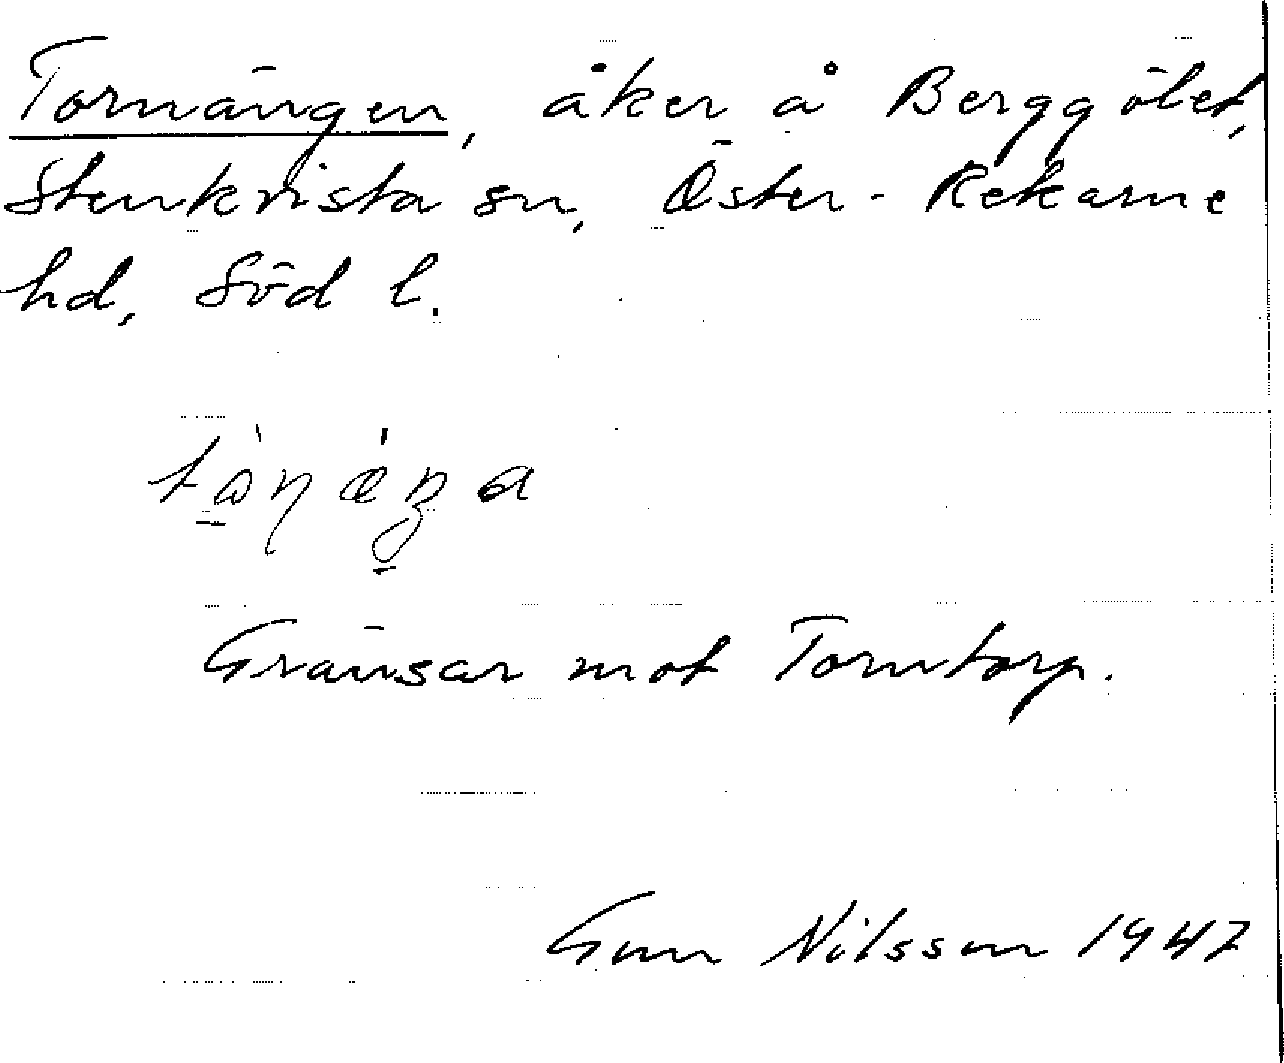 Tornängen, åker å Berggölet,
Stenkvista sn, Öster-Rekarne
hd, Söd l.
Gränsar mot Torntorp.
Gun Nilsson 1947